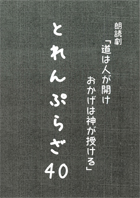 朗読劇
「道は人が開け
おかげは神が授ける」
とれんぷらざ
40